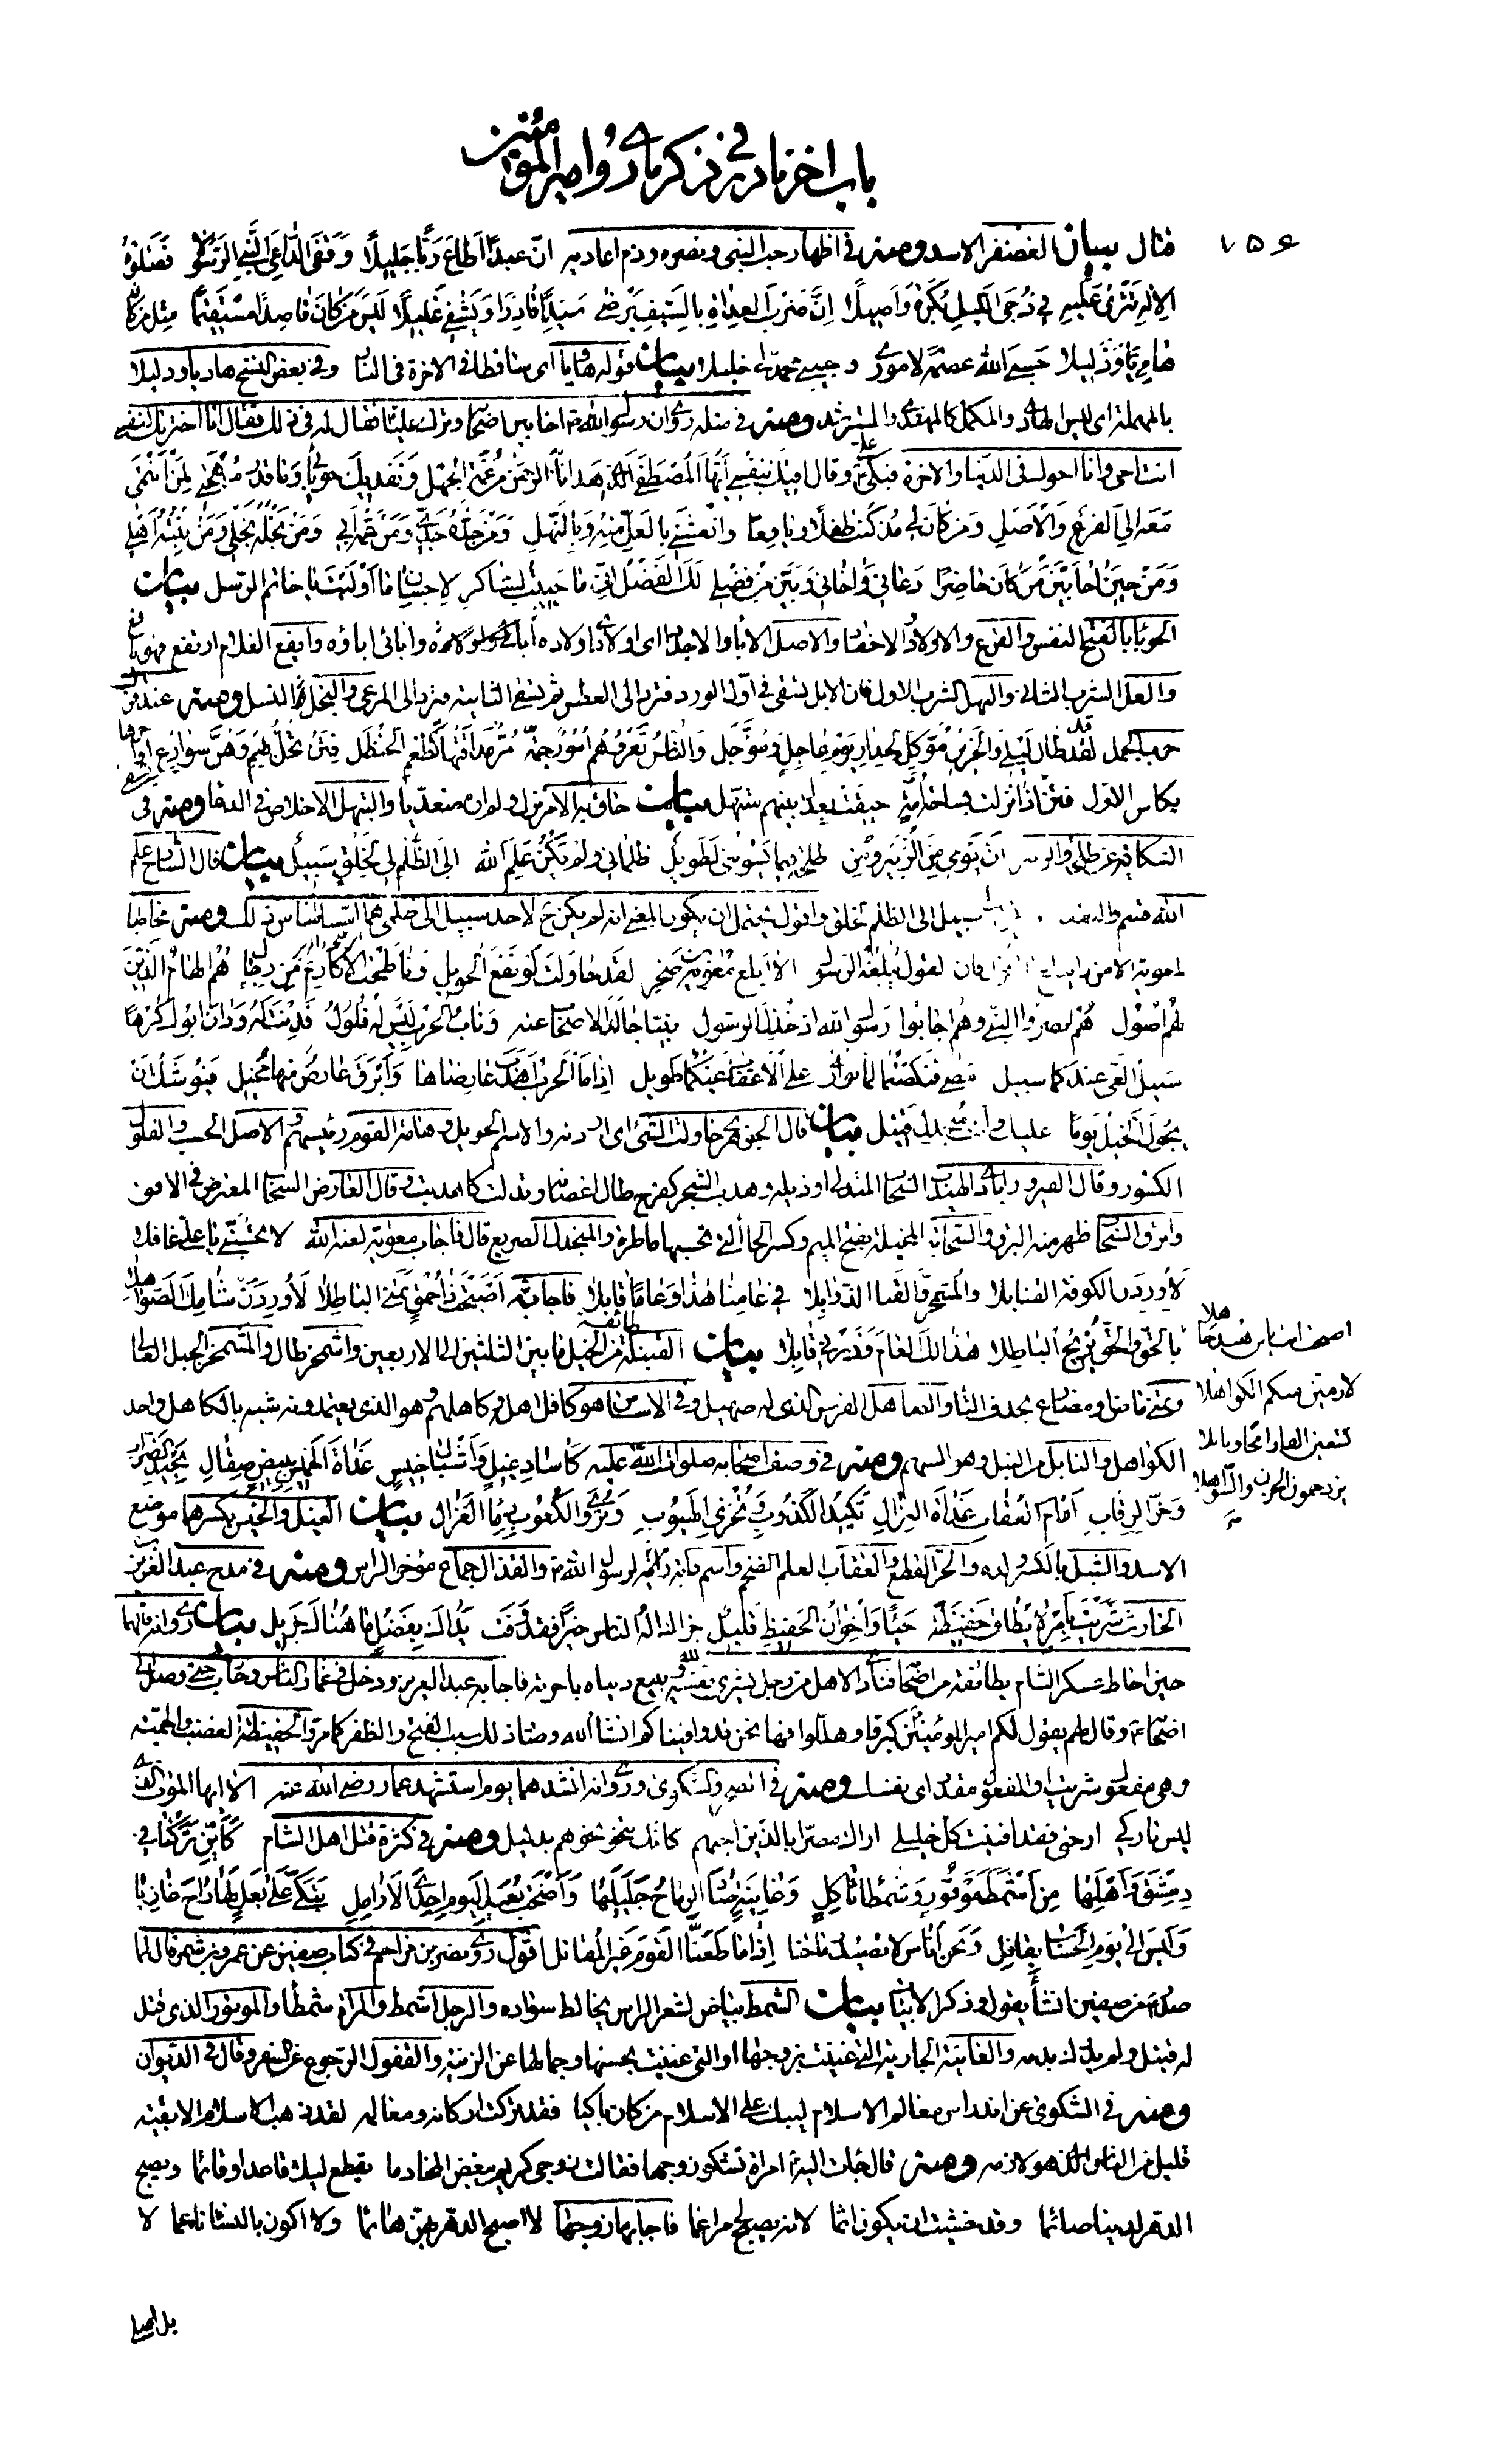 باب اخر نادر في ذكر ما روي امير المؤمنين
٧٥٤
قتال بيان الغضنفر الاسد ومنه في اظهار حب النبي ونصره وذم اعاديه ان عبدا اطاع ربا جليلا وقفى الداعي النبي الرسولا فصلوة
الاله تترى عليه في دجى الليل بكرة واصيلا ان ضرب العداة بالسيف يرضي سيدا قادرا ويشفي غليلا ليس من كان قاصدا مستقيما مثل من كان
هاويا وذليلا حسبي الله عصمة لاموري وحبيبي محمد لي خليلا بيان قوله هاويا اي ساقطا في الاخرة في النار وفي بعض النسخ هاديا ودليلا
بالمهملة اي ليس الهادي والمكمل كالمهتدي والمسترشد ومنه في صلة روي ان رسول الله ص اخا بين اصحابه وترك عليا فقال له في ذلك فقال انما اخترتك لنفسي
انت اخي وانا اخوك في الدنيا والاخرة فبكى علي وقال اقيك بنفسي ايها المصطفى الذي هدانا به الرحمن من عمه الجهل ونفديك حوبائي وما قدر مهجتي لمن انتمي
معه الي الفرع والاصل ومن كان لي مذ كنت طفلا ويافعا وانعشني بالعل منه وبالنهل ومن جده جدي ومن عمه ابي ومن نجله نجلي ومن بنته اهلي
ومن حين اخا بين من كان حاضرا دعاني واخاني وبين من فضلي لك الفضل اني ما حييت لشاكر لاحسان ما اوليت يا خاتم الرسل بيان
الحوباء بالفتح النفس والفرع والاولاد الاحفاد والاصل الاباء والاجداد اي اولادي اولاده وابائي اباؤه وايفع الغلام ارتفع فهو يافع
والعل الشرب الثاني والنهل الشرب الاول لان الابل تسقى في اول الورد فترد الى العطن ثم تسقى الثانية فترد الى المرعى والنجل النسل ومنه عند قرب
حرب الجمل لقد طال ليلي والحزن موكل لحذار يوم عاجل ومؤجل والناس تعروهم امور جمة مر مذاقتها كطعم الحنظل فتن تحل بهم وهن سوارع
بكاس الاول فتن اذا نزلت بساحة امة حيقت بعدل بينهم متبهل بيان حاق به الامر نزل والتبهل الاخلاص في الدعاء ومنه في
الشكاية عن طلحة والزبير ان يومي من الزبير ومن طلحة فيما يسوئني لطويل ظلماني ولم يكن علم الله الى الظلم لي لخلق سبيل بيان قال الشارح علم
سبيل الى الظلم لخلق واقول يحتمل ان يكون المعنى انه لم يكن لاحد سبيل الى ظلمي ومنه مخاطبا
الا ابلغ معوية بن صخر لقد حاولت لو نفع الحويل وناطحت الاكارم من رجال هم الهام الذين
لهم اصول هم نصروا النبي وهم اجابوا رسول الله اذ خذل الرسول نبيا جالد الاصحاب عنه وناب الحرب ليس له فلول فدنت له ودان ابوك كرها
سبيل الغي عندكما سبيل مضى فنكصتما لما تولى على الاعقاب غيكما طويل اذا ما الحرب اهدب عارضاها وابرق عارض منها مخيل فيوشك ان
يجول الخيل يوما عليك وانت منجدل قتيل بيان قال الجوهري حاولت الشيء اي اردته والاسم الحويل وهامة القوم رئيسهم والاصل الحسب والفلول
الكسور وقال الفيروزابادي الهيدب السحاب المتدلي او ذيله وهدب الشجر كفرح طال اغصانه وتدلت كاهدبت وقال العارض السحاب المعترض في الافق
وابرق السحاب ظهر منه البرق والسحابة المخيلة بفتح الميم وكسر الخاء التي تحسبها ماطرة والمنجدل الصريع قال فاجاب معوية لعنه الله لا تحسبني يا علي غافلا
لاوردن الكوفة القنابلا والمشمخر والقنا الذوابلا في عامنا هذا وعاما قابلا فاجابه اصبحت ذا حمق تمنى الباطلا لاوردن شامك الصواهلا
بالحق والحق يزيح الباطلا هذا لك العام وذرني قابلا بيان القنبلة طائفة من الخيل ما بين الثلثين الى الاربعين واشمخر طال والمشمخر الجبل العالي
وتمنى ماض او مضارع بحذف التاء والصاهل الفرس الذي له صهيل وفي الاساس هو كافل اهله وكاهلهم وهو الذي يعتمدونه شبه بالكاهل واحد
الكواهل والنابل من النبل وهو السهم ومنه في وصف اصحابه صلوات الله عليه كاساد غيل واشبال خيس غداة الخميس ببيض صقال
وحز الرقاب امام العقاب غداة النزال تكيد الكذوب وتخزي الهيوب وتروي الكعوب دماء القذال بيان الغيل والخيس بكسرهما موضع
الاسد والشبل بالكسر ولده والحز القطع والعقاب العلم الضخم واسم راية لرسول الله ص والقذال جماع مؤخر الراس ومنه في مدح عبد العزيز
الحارث شريت بامر لا يطاق حفيظة حياء واخوان الحفيظ قليل جزاك اله الناس خيرا فقد وفت يداك بفضل ما هناك جزيل بيان روي انه قالها
حين احاط عسكر الشام بطائفة من اصحابه فنادى الاهل من رجل يشري نفسه لله ويبيع دنياه باخرته فاجابه عبد العزيز ودخل في غمار الناس وحارب حتى وصل الى
اصحابه وقال لهم يقول لكم امير المؤمنين كبروا وهللوا فها نحن قد وافيناكم انشاء الله وصار ذلك سبب الفتح والظفر كما مر والحفيظة الغضب والحمية
وهي مفعول شريت او المفعول مقدر اي نفسك ومنه في الشكوى وروي انه انشدهما يوم استشهد عمار رضي الله عنه الا ايها الموت الذي
ليس تاركي ارحني فقد افنيت كل خليلي اراك مصرا بالذين احبهم كانك تنحو نحوهم بدليل ومنه في كثرة قتل اهل الشام كاين تركنا في
دمشق واهلها من اشمط موتور وشمطاء ثاكل وغانية صاد الرماح حليلها واضحت بعيد اليوم احدى الارامل تبكي على بعل لها راح غازيا
وليس الى يوم الحساب بقافل ونحن اناس لا تصيد رماحنا اذا ما طعنا القوم غير المقاتل اقول روى نصر بن مزاحم في كتاب صفين عن عمرو بن شمر قال لما
صدر من صفين انشأ يقول وذكر الابيات بيان الشمط بياض لشعر الراس يخالط سواده والرجل اشمط والمراة شمطاء والموتور الذي قتل
له قتيل ولم يدرك بدمه والغانية الجارية التي غنيت بزوجها او التي غنيت بحسنها وجمالها عن الزينة والقفول الرجوع عن السفر وقال في الديوان
ومنه في الشكوى عن اندراس معالم الاسلام ليبك على الاسلام من كان باكيا فقد تركت اركانه ومعالمه لقد ذهب الاسلام الا بقية
قليل من الناس الذي هو لازمه ومنه قال جاءت اليه امراة تشكو زوجها فقالت زوجي كريم يبغض المحارما يقطع ليلا قاعدا وقائما ويصبح
الدهر لدينا صائما وقد خشيت ان يكون اثما لانه يصبح لي مراغما فاجابها زوجها لا اصبح الدهر بهن هائما ولا اكون بالنساء ناعما لا
بل اصلي
اصبحت انت يا بن هند جاهلا
لارمين منكم الكواهلا
يزدحمون الحزن والسواهلا